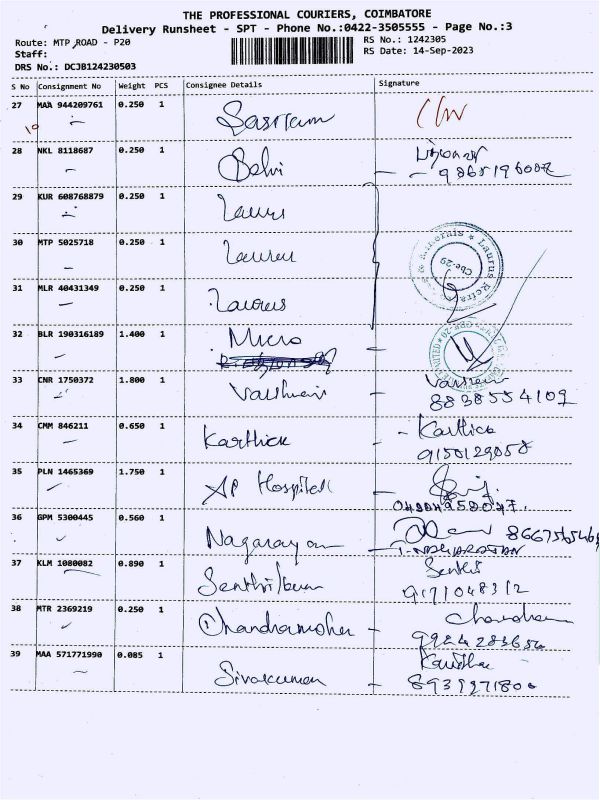 THE PROFESSIONAL COURIERS, COIMBATORE
Delivery Runsheet - SPT - Phone No.:0422-3505555 - Page No.:3
Route: MTP ROAD - P20
RS No.: 1242305
Staff:
RS Date: 14-Sep-2023
DRS No.: DCJB124230503
S No Consignment No Weight PCS Consignee Details Signature
27 MAA 944209761 0.250 1
10
28 NKL 8118687 0.250 1 Selvi
29 KUR 608768879 0.250 1 Laurus
30 MTP 5025718 0.250 1 Laurus
31 MLR 40431349 0.250 1 Laurus
Minerals * Laurus
Cbe-29
32 BLR 190316189 1.400 1 Micro
33 CNR 1750372 1.800 1
8838554109
34 CMM 846211 0.650 1 Karthick - Karthick
9150129058
35 PLN 1465369 1.750 1 AP Hospital
36 GPM 5300445 0.560 1 Nagarajan
37 KLM 1080082 0.890 1 Senthilkumar Senthil
9171048312
38 MTR 2369219 0.250 1 Chandramohan - Chandran
9924283654
39 MAA 571771990 0.085 1 Sivakumar - Kavitha
8939271800